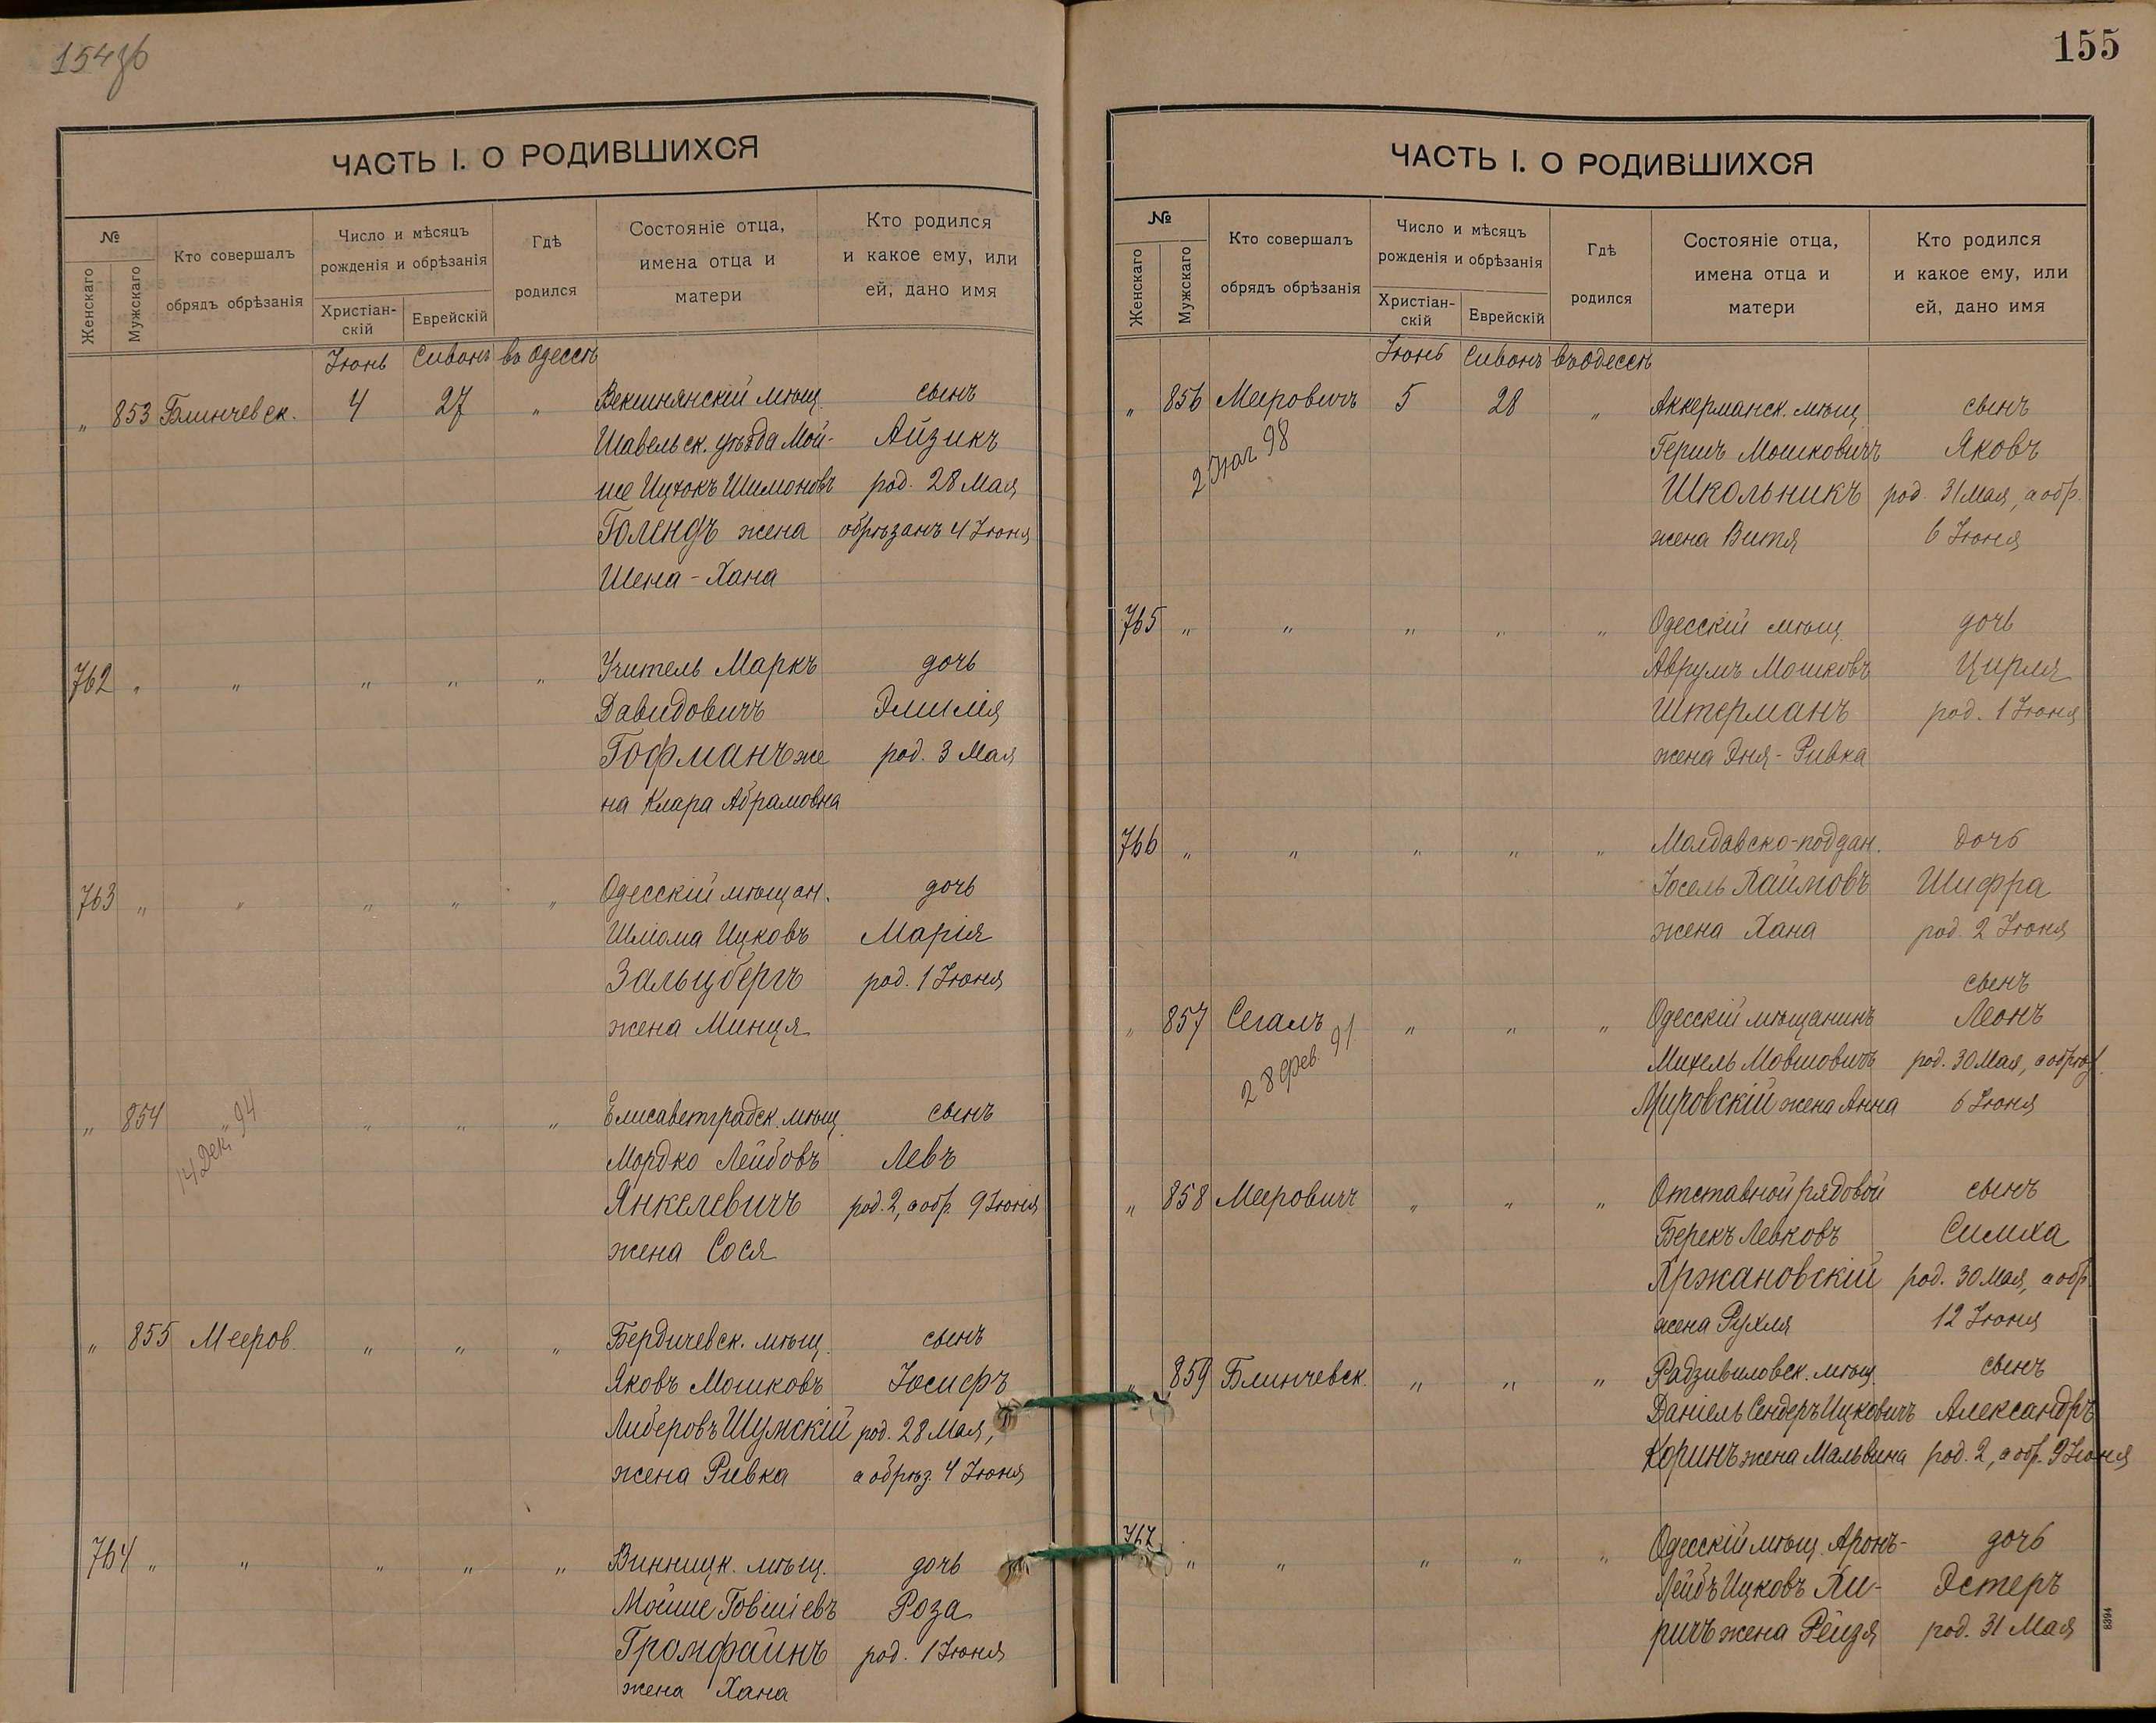 154об
ЧАСТЬ I. О РОДИВШИХСЯ
№
Женскаго
Мужскаго
Кто совершалъ
обрядъ обрѣзанія
Число и мѣсяцъ
рожденія и обрѣзанія
Христіан-
скій
Еврейскій
Гдѣ
родился
Состояніе отца,
имена отца и
матери
Кто родился
и какое ему, или
ей, дано имя
Іюнь Сивонъ въ Одессѣ
„ 853 Блинчевск. 4 27 „ Векшнянскій мѣщ. сынъ
Шавельск. уѣзда Мой- Айзикъ
ше Ицхокъ Шимоновъ род. 28 Мая
Голендъ жена обрѣзанъ 4 Іюня
Шена-Хана
762 „ „ „ „ „ Учитель Маркъ дочь
Давидовичъ Эмилія
Гофманъ же род. 3 Мая
на Клара Абрамовна
763 „ „ „ „ „ Одесскій мѣщан. дочь
Шліома Ицковъ Марія
Зальцбергъ род. 1 Іюня
жена Минця
„ 854 „ „ „ „ Елисаветградск. мѣщ. сынъ
14 Дек. 94
Мордко Лейбовъ Левъ
Янкелевичъ род. 2, а обр. 9 Іюня
жена Сося
„ 855 Мееров. „ „ „ Бердичевск. мѣщ. сынъ
Яковъ Мошковъ Іосифъ
Либеровъ Шумскій род. 28 Мая,
жена Ривка а обрѣз. 4 Іюня
764 „ „ „ „ „ Винницк. мѣщ. дочь
Мойше Говшіевъ Роза
Громфайнъ род. 1 Іюня
жена Хана
155
ЧАСТЬ I. О РОДИВШИХСЯ
№
Женскаго
Мужскаго
Кто совершалъ
обрядъ обрѣзанія
Число и мѣсяцъ
рожденія и обрѣзанія
Христіан-
скій
Еврейскій
Гдѣ
родился
Состояніе отца,
имена отца и
матери
Кто родился
и какое ему, или
ей, дано имя
Іюнь Сивонъ въ Одессѣ
„ 856 Меровичъ 5 28 „ Аккерманск. мѣщ. сынъ
98
Гершъ Мошковичъ Яковъ
Школьникъ род. 31 Мая, а обр.
жена Витя 6 Іюня
765 „ „ „ „ „ Одесскій мѣщ. дочь
Аврумъ Мошковъ Цирля
Штерманъ род. 1 Іюня
жена Эня-Ривка
766 „ „ „ „ „ Молдавско-поддан. дочь
Іосель Хаимовъ Шифра
жена Хана род. 2 Іюня
сынъ
„ 857 Сегалъ „ „ „ Одесскій мѣщанинъ Леонъ
28 фев. 91
Михель Мовшовичъ род. 30 Мая, а обрѣз.
Мировскій жена Анна 6 Іюня
„ 858 Меерович „ „ „ Отставной рядовой сынъ
Берекъ Левковъ Симха
Хржановскій род. 30 Мая, а обр.
жена Рухля 12 Іюня
„ 859 Блинчевск. „ „ „ Радзивиловск. мѣщ. сынъ
Даніель Сендеръ Ицковичъ Александръ
Коринъ жена Мальвина род. 2, а обр. 9 Іюня
767 „ „ „ „ „ Одесскій мѣщ. Аронъ- дочь
Лейбъ Ицковъ Хи- Эстеръ
ричъ жена Рейзя род. 31 Мая
8394